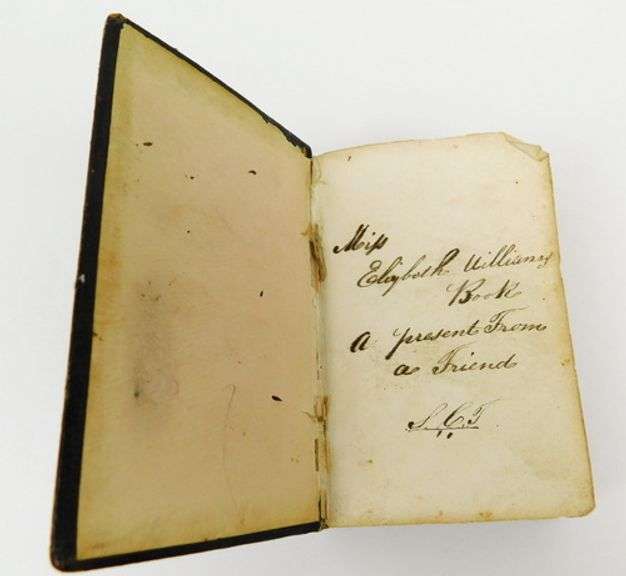 Miſs
Elizabeth Williams
Book
A present From
a Friend
S. C. T